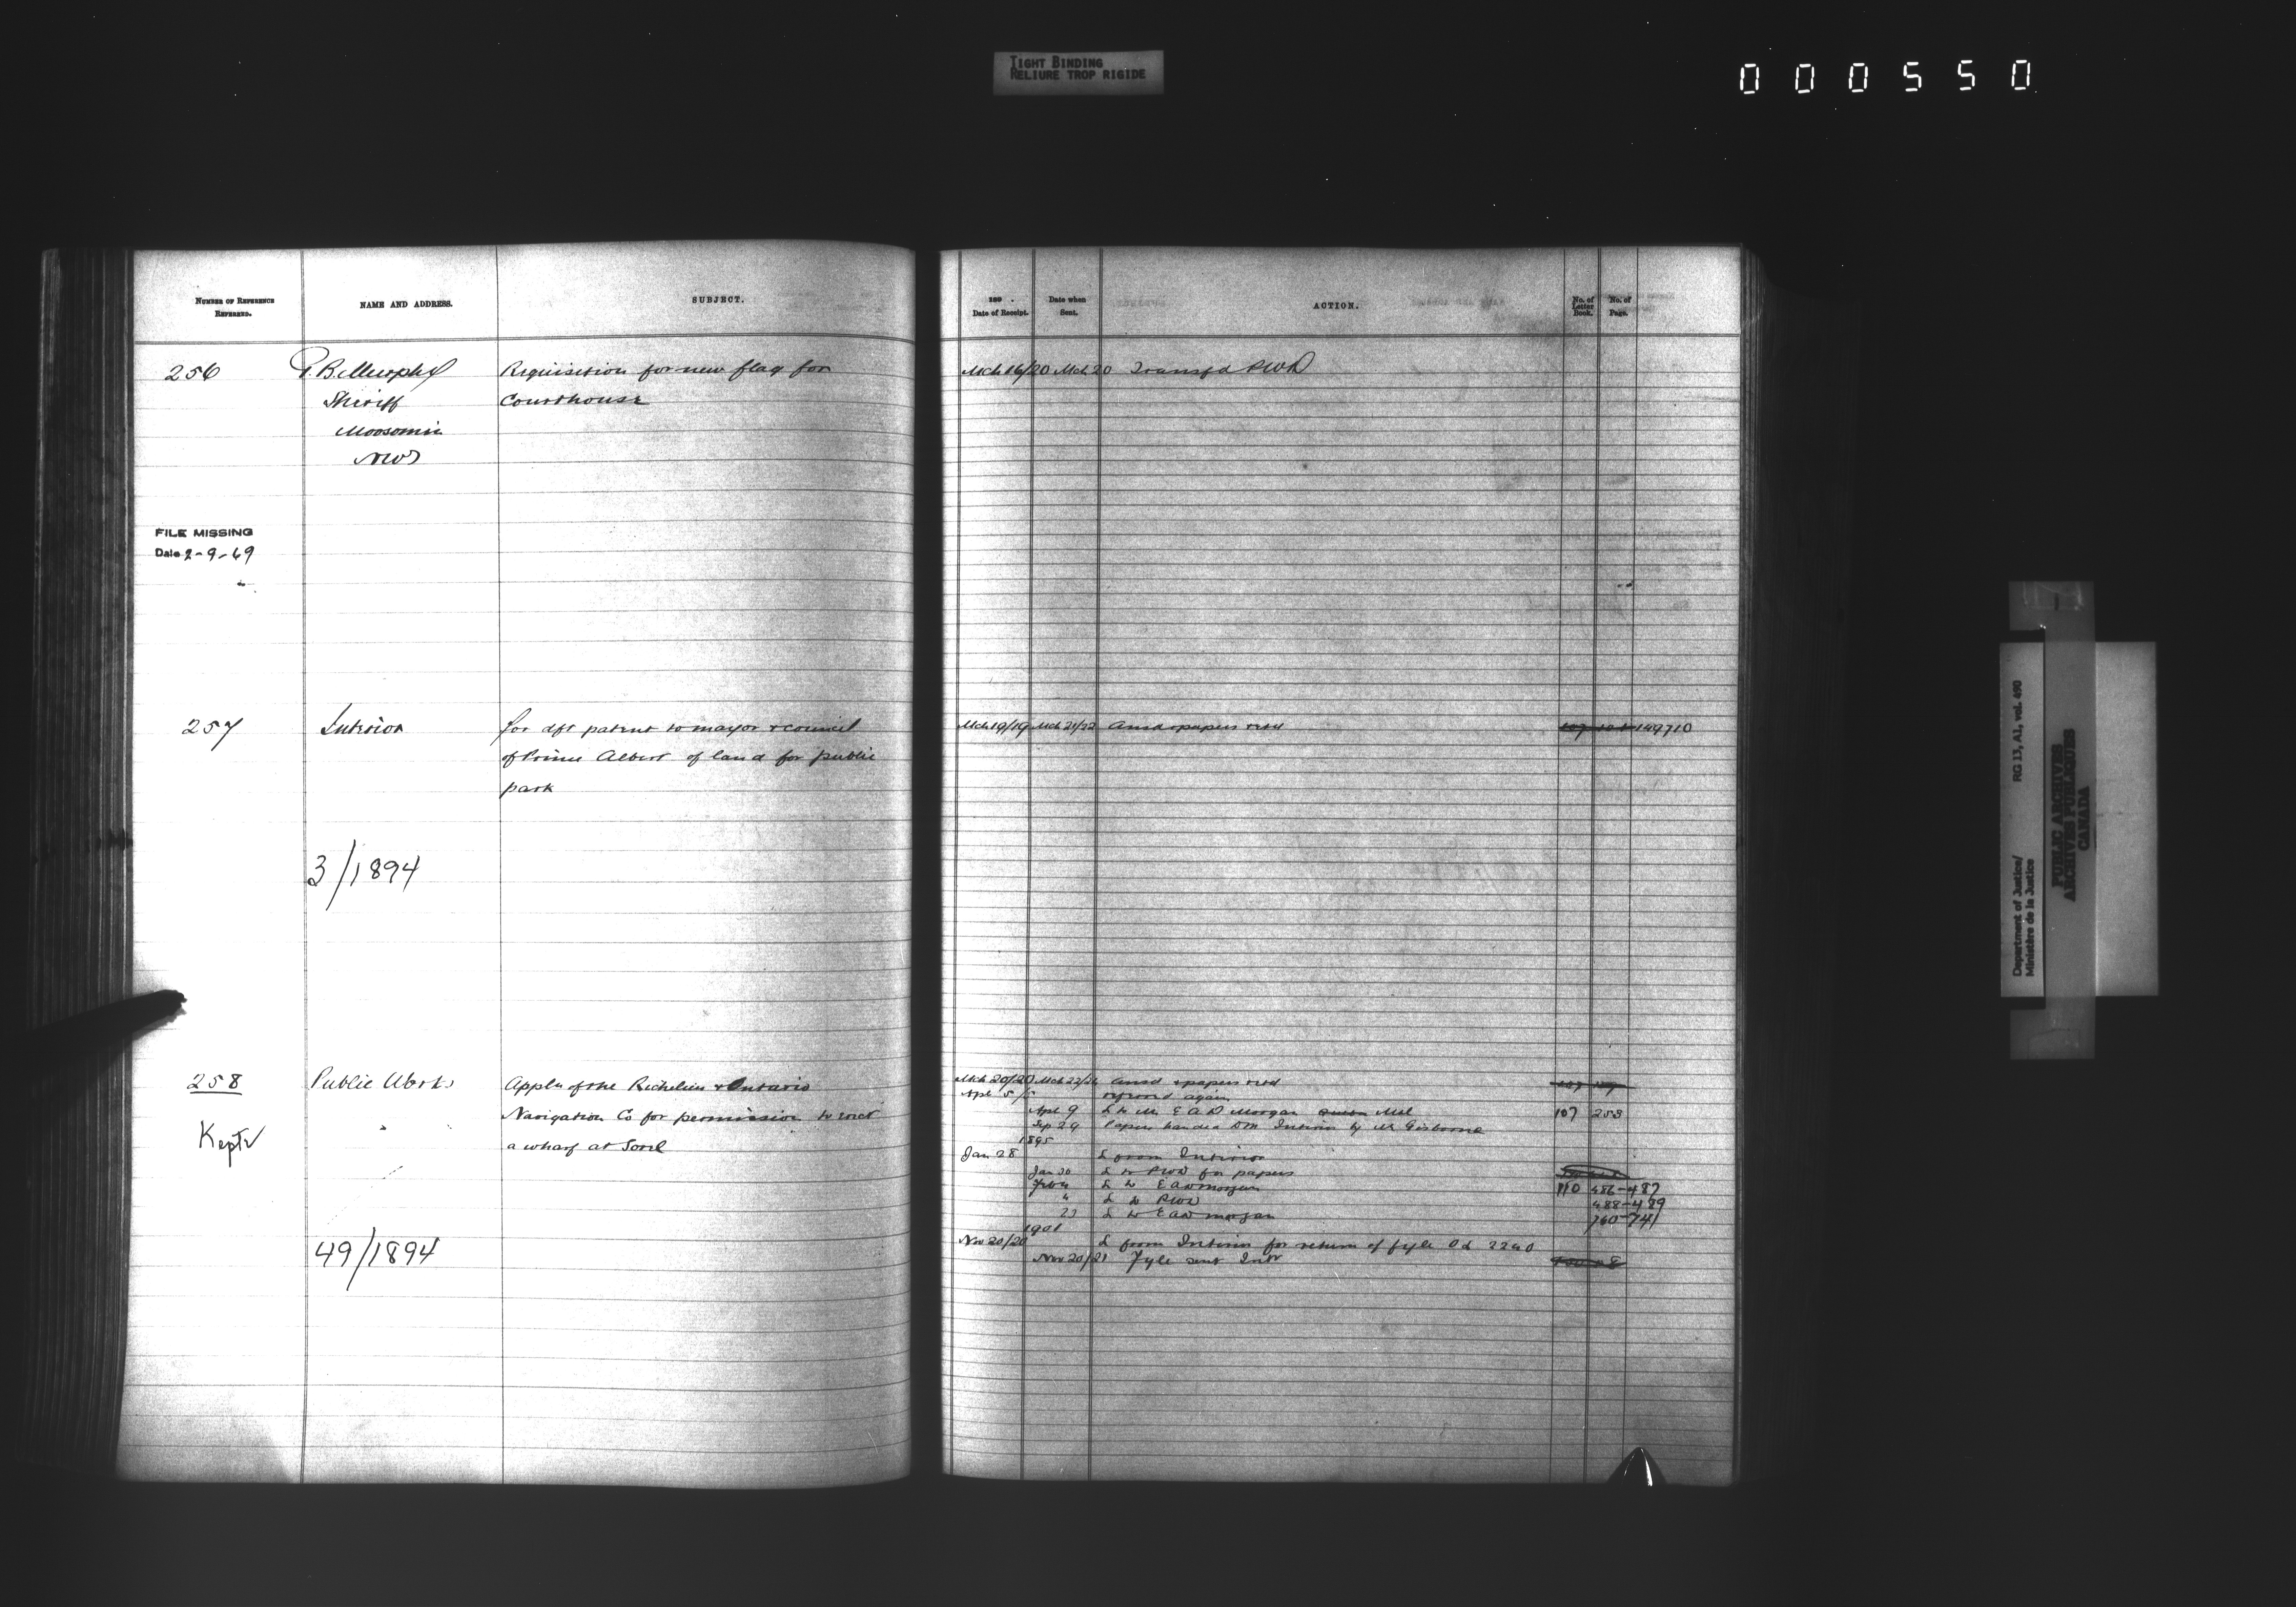 TIGHT BINDING
RELIURE TROP RIGIDE
000550
NUMBER OF REFERENCE
REFERRED.
NAME AND ADDRESS.
SUBJECT.
189 .
Date of Receipt.
Date when
Sent.
ACTION.
No. of
Letter
Book.
No. of
Page.
256
B. Murphy
Sheriff
Moosomin
NWT
Requisition for new flag for
Courthouse
Mch 16/20 Mch 20 Transfd PWD
FILE MISSING
Date 2-9-69
257
Interior
for dft patent to mayor & council
of Prince Albert of land for public
park
Mch 19/19 Mch 21/22 Ansd & papers retd
149710
3/1894
258
Kept
Public Works
Appln of the Richelieu & Ontario
Navigation Co for permission to erect
a wharf at Sorel
49/1894
Mch 20/20 Mch 22/ Ansd & papers retd
Apl 5/5 referred again
Apl 9 L to Mr E A D Morgan Mtl 107 253
Sep 29 Papers handed DM Interior by Mr Gisborne
1895
Jan 28 L from Interior
Jan 30 L to PWD for papers
Feb 4 L to E A D Morgan 110 486-487
" L to PWD 488-489
23 L to E A D Morgan 740-741
1901
Nov 20/20 L from Interior for return of fyle Od 2240
Nov 20/21 Fyle sent Intr
Department of Justice/
Ministère de la Justice
RG 13, A1, vol. 490
PUBLIC ARCHIVES
ARCHIVES PUBLIQUES
CANADA